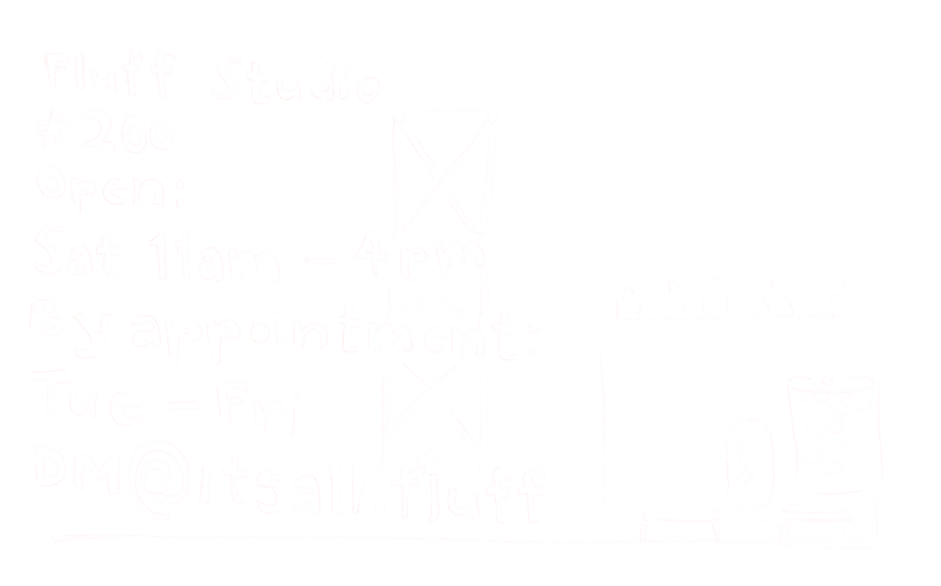 Fluff Studio
#200
Open:
Sat 11am - 4pm
By appointment:
Tue - Fri
DM@itsallfluff